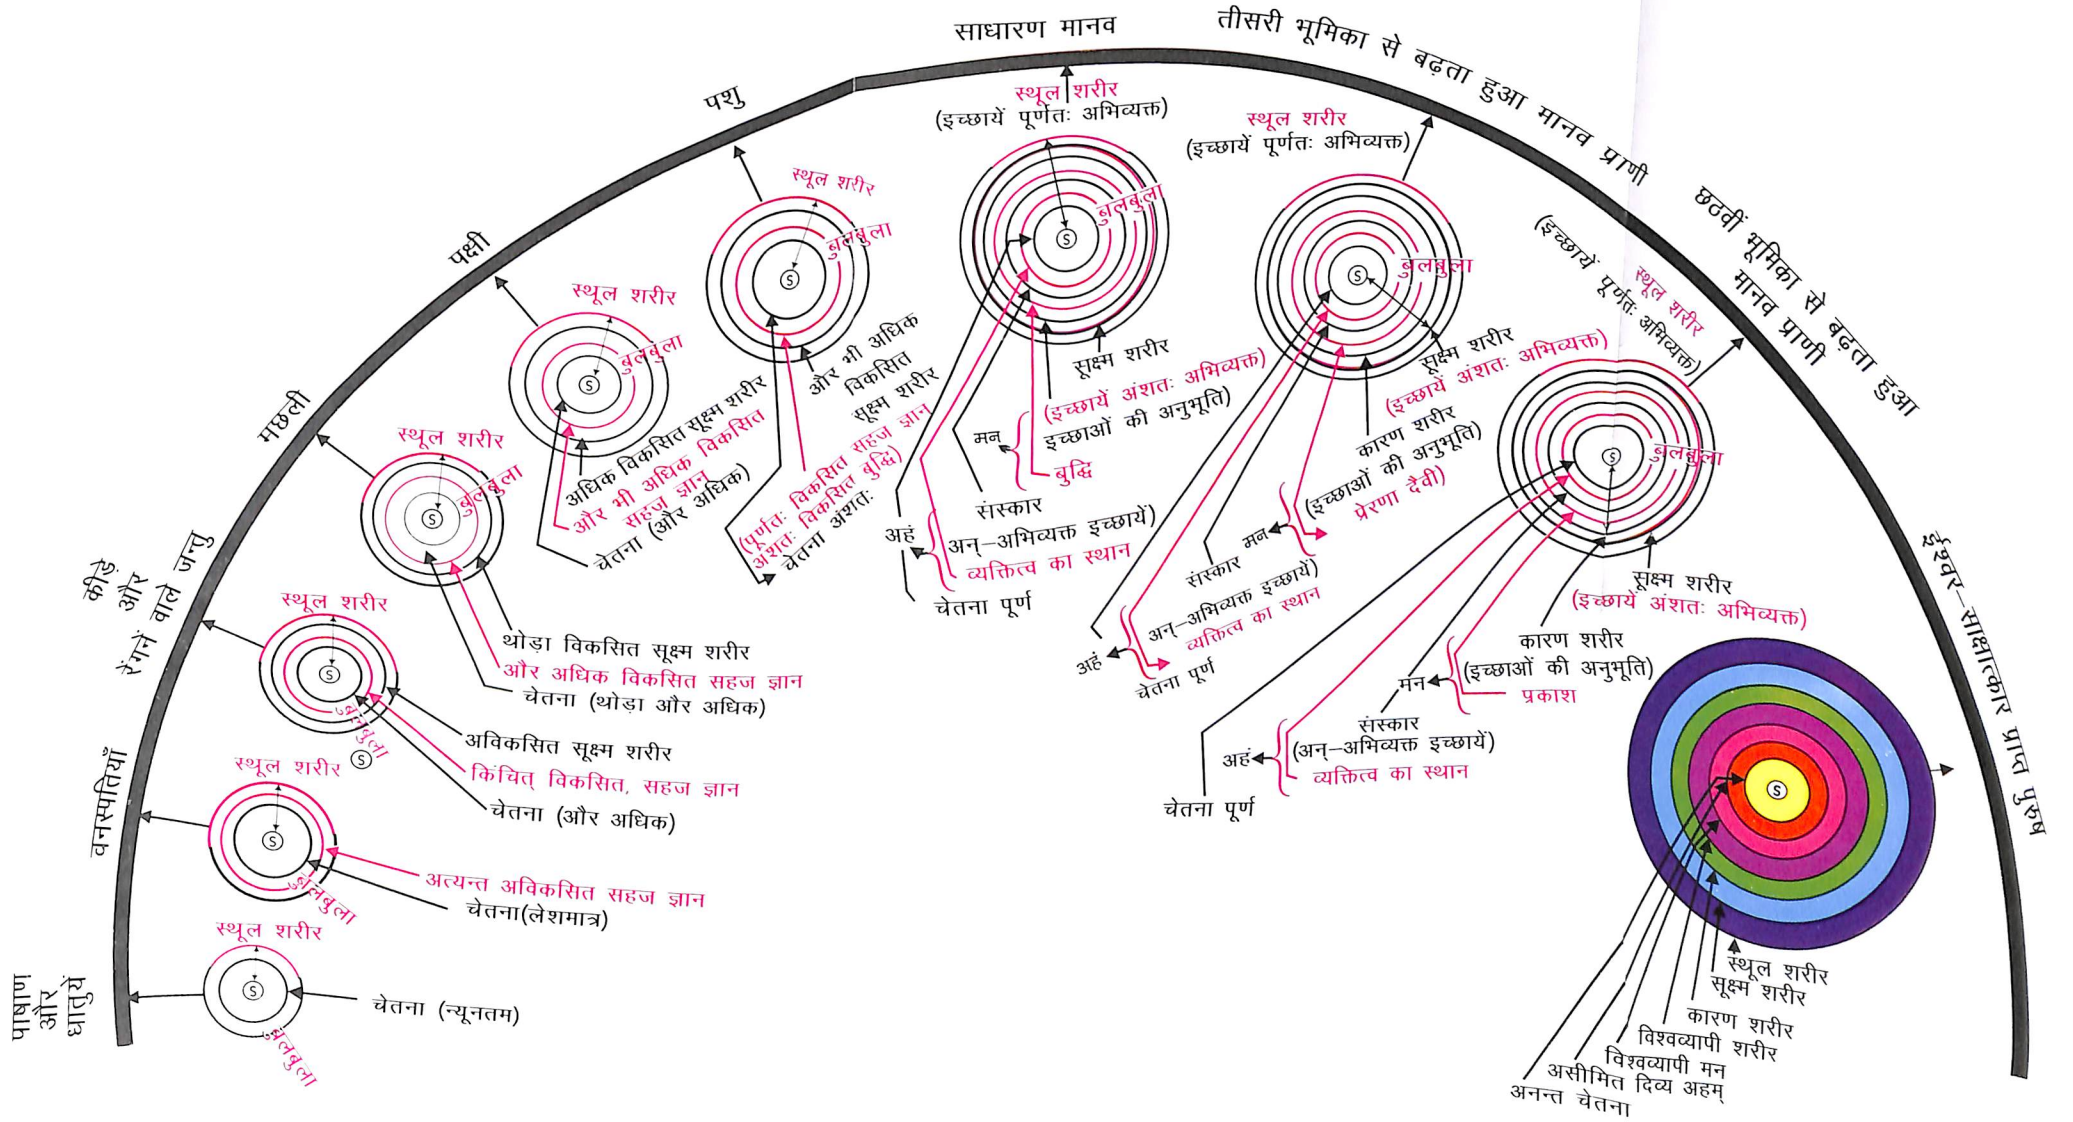 पाषाण
और
धातुयें
स्थूल शरीर
Ⓢ
बुलबुला
चेतना (न्यूनतम)
वनस्पतियाँ
स्थूल शरीर
Ⓢ
बुलबुला
अत्यन्त अविकसित सहज ज्ञान
चेतना(लेशमात्र)
कीड़े
और
रेंगनें वाले जन्तु
स्थूल शरीर
Ⓢ
बुलबुला
Ⓢ
अविकसित सूक्ष्म शरीर
किंचित् विकसित, सहज ज्ञान
चेतना (और अधिक)
मछली
स्थूल शरीर
Ⓢ
बुलबुला
थोड़ा विकसित सूक्ष्म शरीर
और अधिक विकसित सहज ज्ञान
चेतना (थोड़ा और अधिक)
पक्षी
स्थूल शरीर
Ⓢ
बुलबुला
अधिक विकसित सूक्ष्म शरीर
और भी अधिक विकसित
सहज ज्ञान
चेतना (और अधिक)
पशु
स्थूल शरीर
Ⓢ
बुलबुला
और भी अधिक
विकसित
सूक्ष्म शरीर
(पूर्णतः विकसित सहज ज्ञान्
अंशतः विकसित बुद्धि)
चेतना अंशतः
साधारण मानव
स्थूल शरीर
(इच्छायें पूर्णतः अभिव्यक्त)
Ⓢ
बुलबुला
सूक्ष्म शरीर
(इच्छायें अंशतः अभिव्यक्त)
इच्छाओं की अनुभूति)
मन
बुद्धि
संस्कार
अन्–अभिव्यक्त इच्छायें)
अहं
व्यक्तित्व का स्थान
चेतना पूर्ण
तीसरी भूमिका से बढ़ता हुआ मानव प्राणी
स्थूल शरीर
(इच्छायें पूर्णतः अभिव्यक्त)
Ⓢ
बुलबुला
सूक्ष्म शरीर
(इच्छायें अंशतः अभिव्यक्त)
कारण शरीर
(इच्छाओं की अनुभूति)
प्रेरणा दैवी)
मन
संस्कार
अन्–अभिव्यक्त इच्छायें)
व्यक्तित्व का स्थान
अहं
चेतना पूर्ण
छठवीं भूमिका से बढ़ता हुआ
मानव प्राणी
स्थूल शरीर
(इच्छायें पूर्णतः अभिव्यक्त)
Ⓢ
बुलबुला
सूक्ष्म शरीर
(इच्छायें अंशतः अभिव्यक्त)
कारण शरीर
(इच्छाओं की अनुभूति)
मन
प्रकाश
संस्कार
(अन्–अभिव्यक्त इच्छायें)
अहं
व्यक्तित्व का स्थान
चेतना पूर्ण
ईश्वर–साक्षात्कार प्राप्त पुरुष
Ⓢ
स्थूल शरीर
सूक्ष्म शरीर
कारण शरीर
विश्वव्यापी शरीर
विश्वव्यापी मन
असीमित दिव्य अहम्
अनन्त चेतना